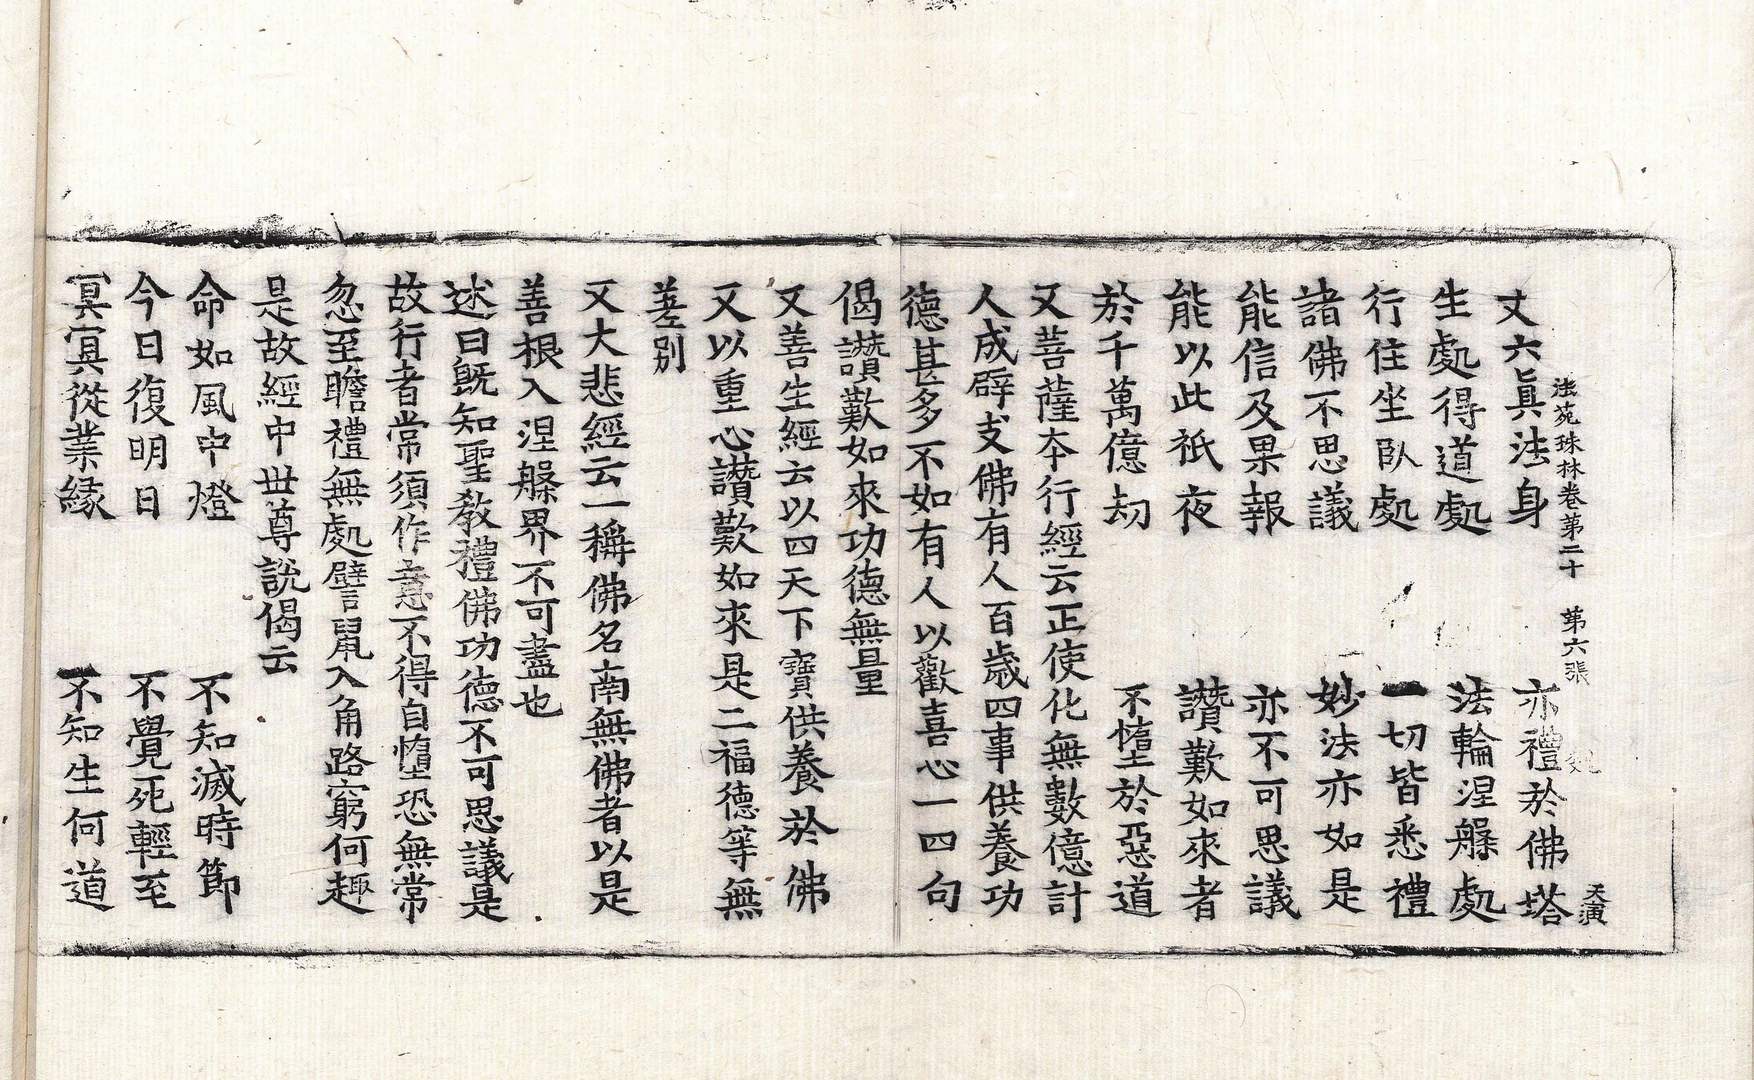 法苑珠林卷第二十 第六張 天演
丈六眞法身 亦禮於佛塔
生處得道處 法輪涅槃處
行住坐臥處 一切皆悉禮
諸佛不思議 妙法亦如是
能信及果報 亦不可思議
能以此祇夜 讚歎如來者
於千萬億劫 不墮於惡道
又菩薩本行經云正使化無數億計
人成辟支佛有人百歲四事供養功
德甚多不如有人以歡喜心一四句
偈讚歎如來功德無量
又善生經云以四天下寶供養於佛
又以重心讚歎如來是二福德等無
差別
又大悲經云一稱佛名南無佛者以是
善根入涅槃界不可盡也
述曰旣知聖教禮佛功德不可思議是
故行者常須作意不得自墮恐無常
忽至瞻禮無處譬鼠入角路窮何趣
是故經中世尊說偈云
命如風中燈 不知滅時節
今日復明日 不覺死輕至
冥冥從業緣 不知生何道